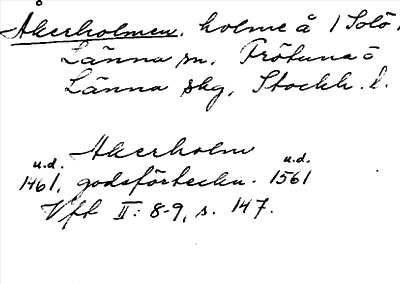 Åkerholmen, holme å 1 Solö,
Länna sn, Frötuna o
Länna skg, Stockh. l.
Akerholm
u.d. u.d.
1461, godsförteckn. 1561
Vft II: 8-9, s. 147.